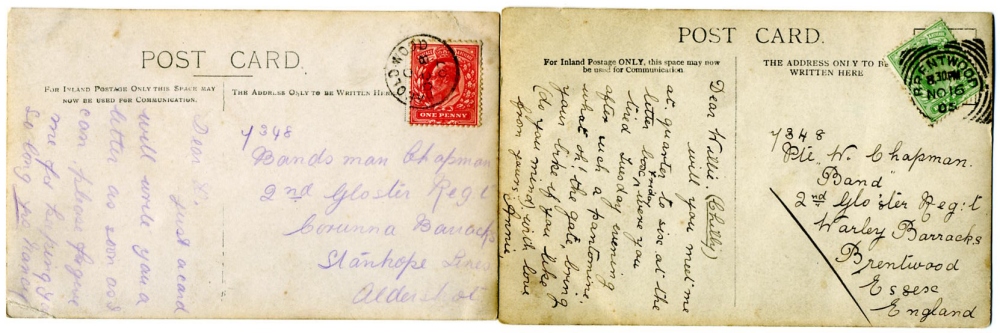 POST CARD.
FOR INLAND POSTAGE ONLY THIS SPACE MAY
NOW BE USED FOR COMMUNICATION.
THE ADDRESS ONLY TO BE WRITTEN HERE
ONE PENNY
Dear
Just a card
will write you a
letter as soon as
can please
me for
So long
4348
Bandsman Chapman
2nd Gloster Regt
Corunna Barracks
Stanhope Lines
Aldershot
POST CARD.
For Inland Postage ONLY, this space may now
be used for Communication
THE ADDRESS ONLY TO BE
WRITTEN HERE
BRENTWOOD
NO 16
05
Dear Willie. (Chatty)
will you meet me
at quarter to six at the
letter box, were you
Friday
tired Tuesday evening
after such a pantomine.
what oh! the gate, bring
your if you like if
do you mind, with love
from yours Annie,
4348
Pte W. Chapman.
Band
2nd Glo'ster Reg:t
Warley Barracks
Brentwood
Essex
England